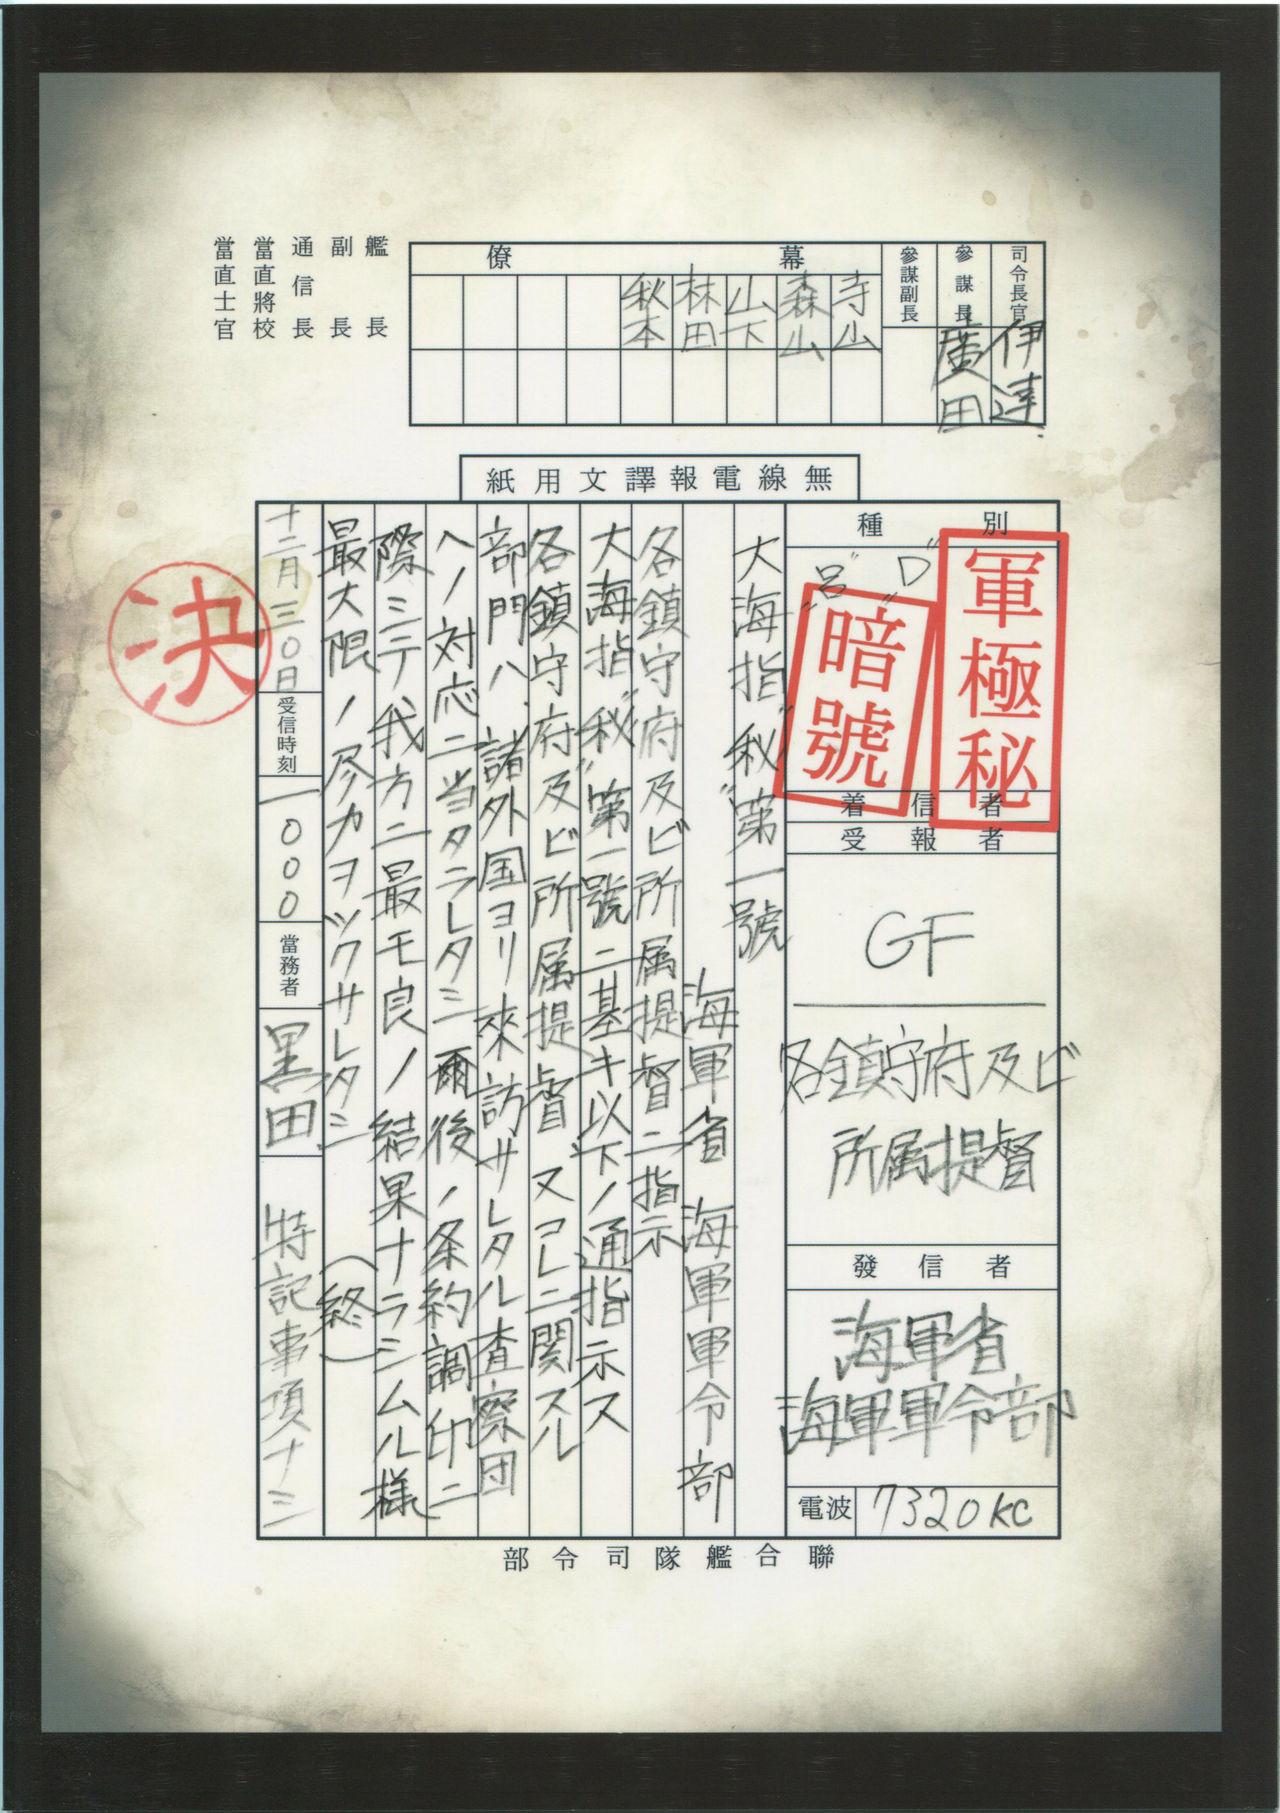 司令長官 伊達
參謀長 廣田
參謀副長
幕僚
寺山
森山
山下
林田
秋本
艦長
副長
通信長
當直將校
當直士官
無線電報譯文用紙
種別
"D"
"呂"
軍極秘
暗號
着信者
受報者
GF
各鎮守府及ビ
所属提督
發信者
海軍省
海軍軍令部
電波 7320KC
大海指"秘"第一號
海軍省 海軍軍令部
各鎮守府及ビ所属提督ニ指示
大海指"秘"第一號ニ基キ以下ノ通指示ス
各鎮守府及ビ所属提督、又コレニ関スル
部門ハ、諸外国ヨリ來訪サレタル査察団
ヘノ対応ニ当タラレタシ爾後ノ条約調印ニ
際シテ我方ニ最モ良ノ結果ナラシムル様
最大限ノ尽力ヲツクサレタシ (終)
十二月三〇日 受信時刻 一000 當務者 黒田 特記事項ナシ
決
聯合艦隊司令部